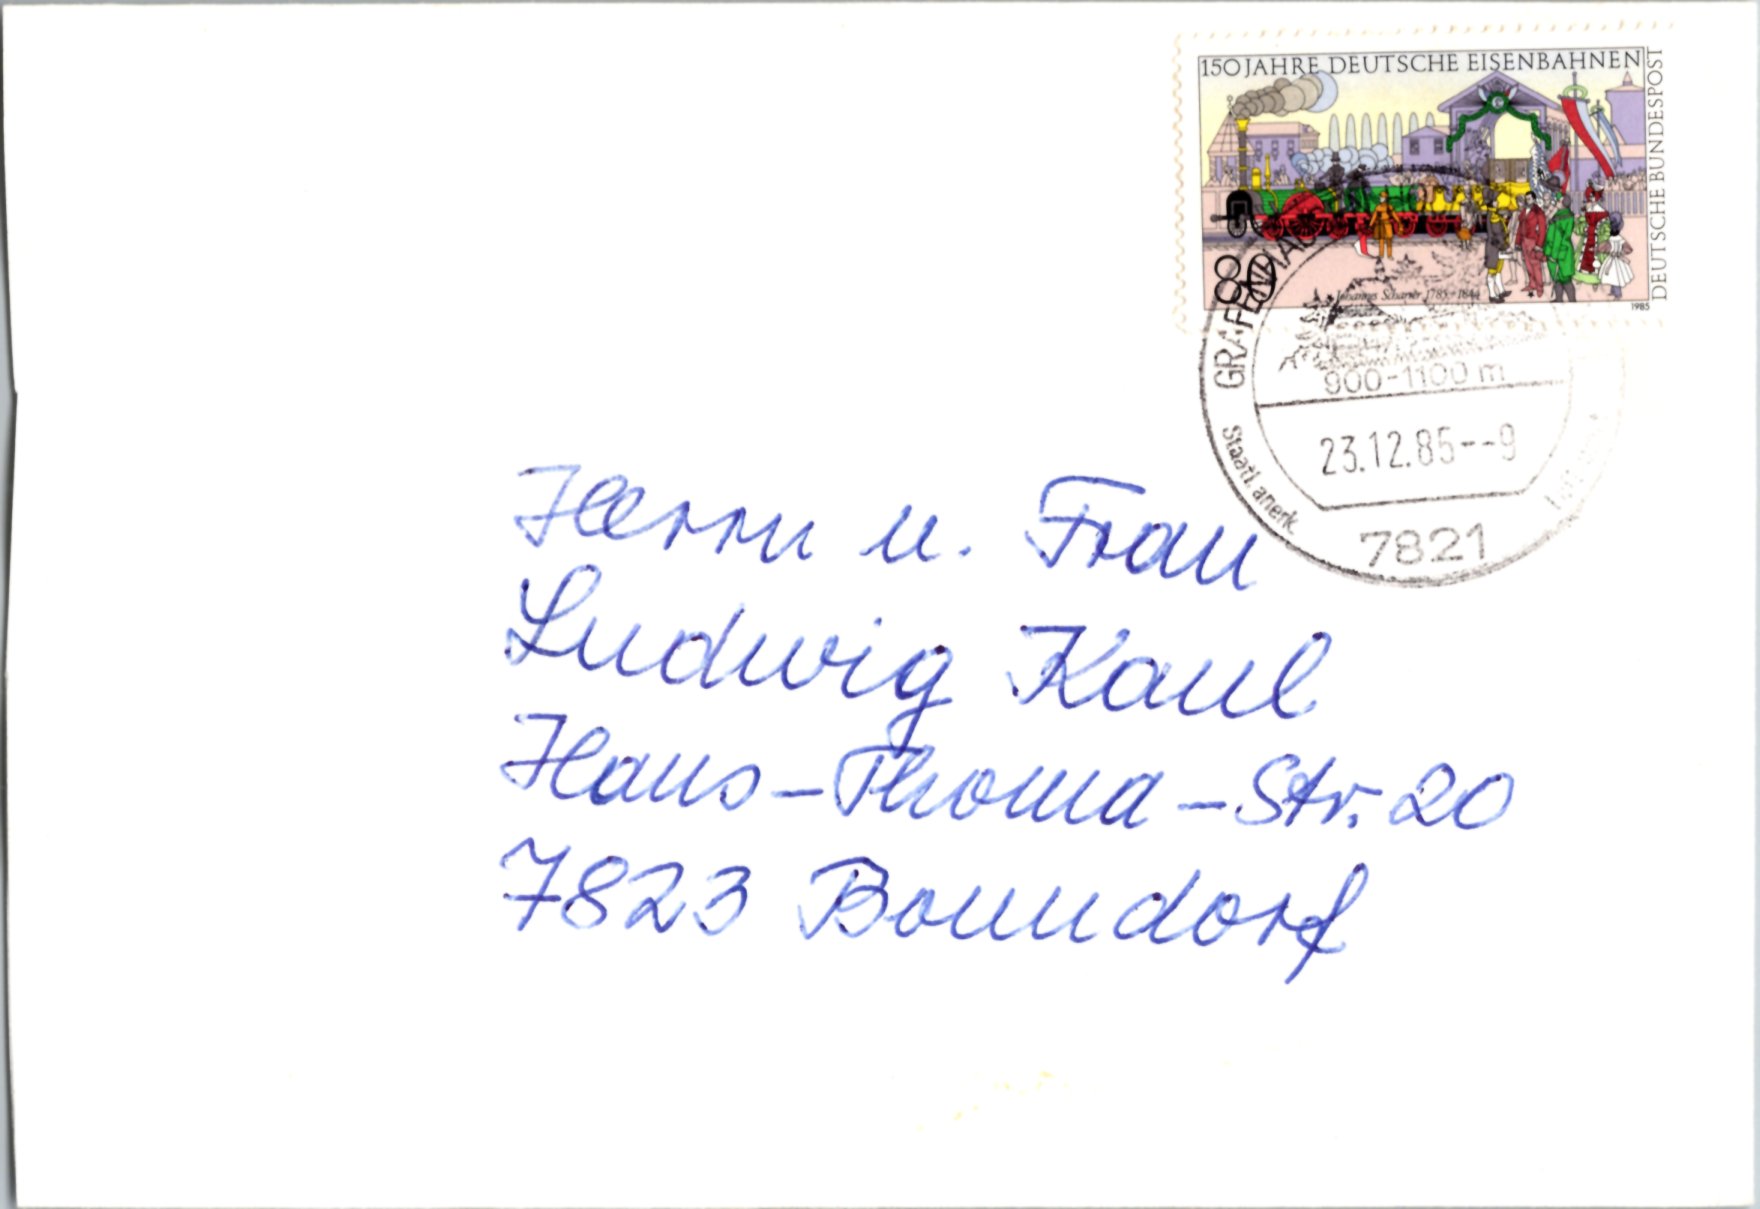 150 JAHRE DEUTSCHE EISENBAHNEN
DEUTSCHE BUNDESPOST
80
Johannes Scharrer 1785-1844
1985
900-1100 m
23.12.85--9
Staatl. anerk.
7821
Herrn u. Frau
Ludwig Kaul
Hans-Thoma-Str. 20
7823 Bonndorf